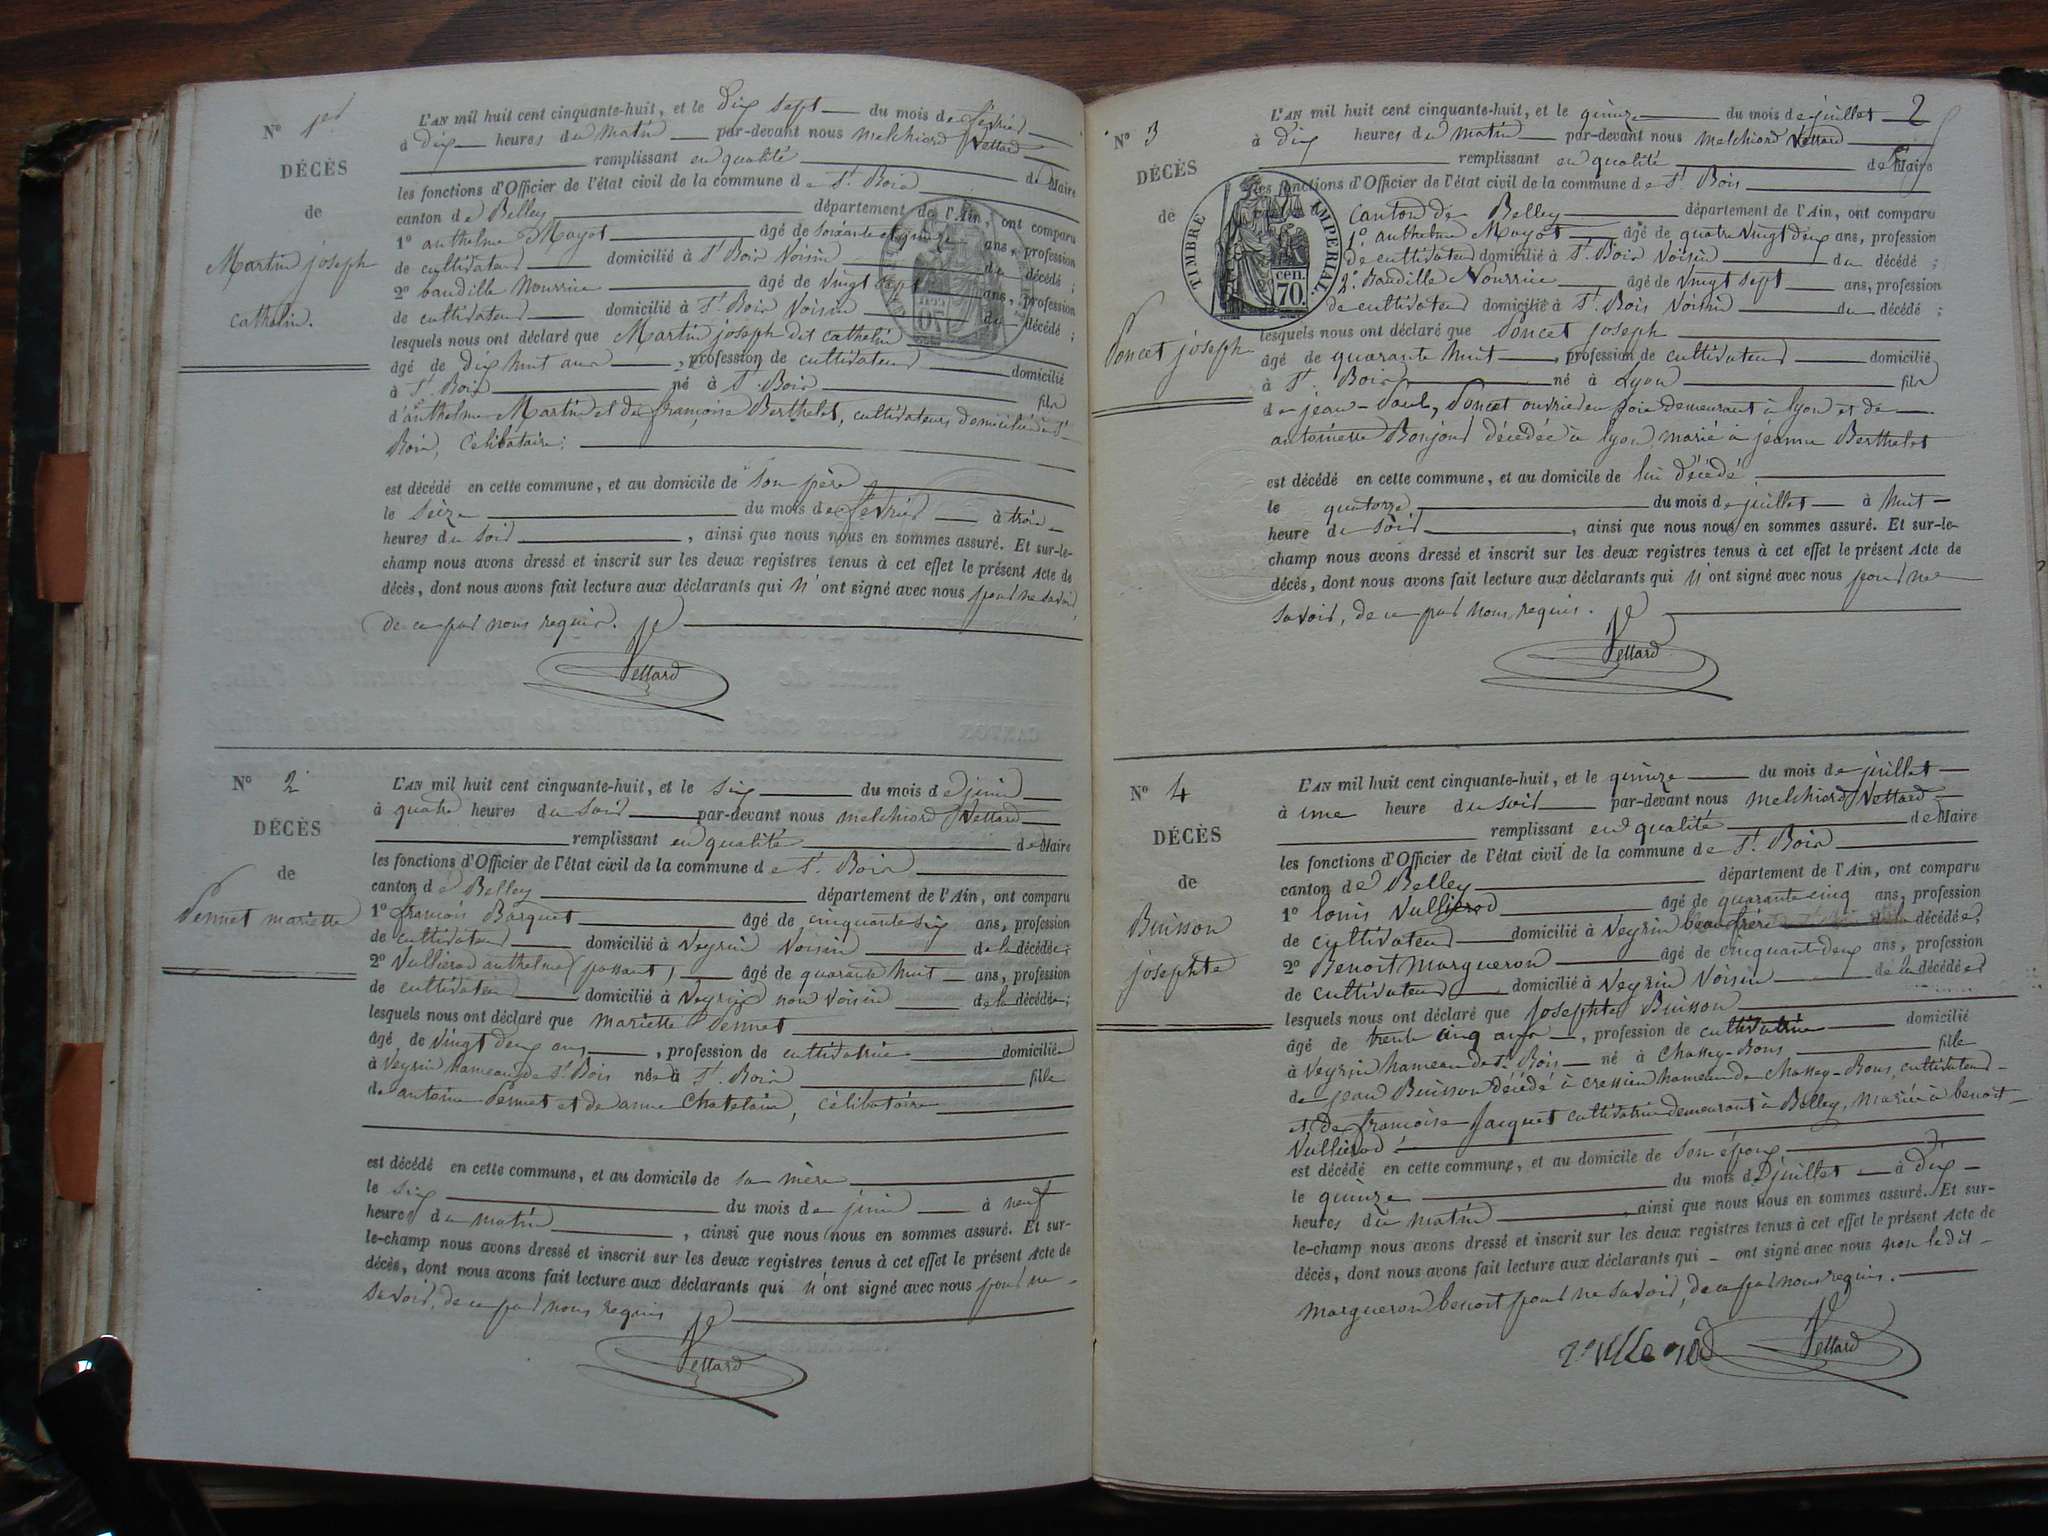 N° 1er
DÉCÈS
de
Martin joseph
cathelin.
L'AN mil huit cent cinquante-huit, et le dix sept du mois de fevrier
à dix heures du matin par-devant nous melchiord Vettard
remplissant en qualité de Maire
les fonctions d'Officier de l'état civil de la commune de St Bois
canton de Belley département de l'Ain, ont comparu
1° anthelme Mayot âgé de soixante et quinze ans, profession
de cultivateur domicilié à St Bois Voisin du décédé;
2° baudille Nourrice âgé de vingt sept ans, profession
de cultivateur domicilié à St Bois Voisin du décédé;
lesquels nous ont déclaré que Martin joseph dit cathelin
âgé de dix huit ans, profession de cultivateur domicilié
à St Bois né à St Bois fils
d'anthelme Martin et de françoise Berthelet, cultivateurs domiciliés à St
Bois, célibataire;
est décédé en cette commune, et au domicile de son père
le seize du mois de fevrier à trois
heures du soir, ainsi que nous nous en sommes assuré. Et sur-le-
champ nous avons dressé et inscrit sur les deux registres tenus à cet effet le présent Acte de
décès, dont nous avons fait lecture aux déclarants qui n'ont signé avec nous pour ne savoir
de ce par nous requis.
Vettard
N° 2
DÉCÈS
de
Pennet mariette
L'AN mil huit cent cinquante-huit, et le six du mois de juin
à quatre heures du soir par-devant nous melchiord Vettard
remplissant en qualité de Maire
les fonctions d'Officier de l'état civil de la commune de St Bois
canton de Belley département de l'Ain, ont comparu
1° françois Barquet âgé de cinquante six ans, profession
de cultivateur domicilié à Veyrin Voisin de la décédée;
2° Vullierod anthelme (passant) âgé de quarante huit ans, profession
de cultivateur domicilié à Veyrin non voisin de la décédée;
lesquels nous ont déclaré que mariette Pennet
âgé de vingt deux ans, profession de cultivatrice domicilié
à Veyrin hameau de St Bois née à St Bois fille
de antoine Pennet et de anne Chatelain, célibataire
est décédé en cette commune, et au domicile de sa mère
le six du mois de juin à neuf
heures du matin, ainsi que nous nous en sommes assuré. Et sur-
le-champ nous avons dressé et inscrit sur les deux registres tenus à cet effet le présent Acte de
décès, dont nous avons fait lecture aux déclarants qui n'ont signé avec nous pour ne
savoir, de ce par nous requis
Vettard
2
N° 3
DÉCÈS
de
Poncet joseph
TIMBRE IMPERIAL
70 cen.
L'AN mil huit cent cinquante-huit, et le quinze du mois de juillet
à dix heures du matin par-devant nous melchiord Vettard
remplissant en qualité de Maire
les fonctions d'Officier de l'état civil de la commune de St Bois
canton de Belley département de l'Ain, ont comparu
1° anthelme Mayot âgé de quatre vingt deux ans, profession
de cultivateur domicilié à St Bois Voisin du décédé;
2° Baudille Nourrice âgé de vingt sept ans, profession
de cultivateur domicilié à St Bois Voisin du décédé;
lesquels nous ont déclaré que Poncet joseph
âgé de quarante huit, profession de cultivateur domicilié
à St Bois né à Lyon fils
de jean-Paul, Poncet ouvrier en soie demeurant à lyon et de
antoinette Bonjour décédée à lyon, marié à jeanne Berthelet
est décédé en cette commune, et au domicile de lui décédé
le quatorze du mois de juillet à huit
heure du soir, ainsi que nous nous en sommes assuré. Et sur-le-
champ nous avons dressé et inscrit sur les deux registres tenus à cet effet le présent Acte de
décès, dont nous avons fait lecture aux déclarants qui n'ont signé avec nous pour ne
savoir, de ce par nous requis.
Vettard
N° 4
DÉCÈS
de
Buisson
josephte
L'AN mil huit cent cinquante-huit, et le quinze du mois de juillet
à une heure du soir par-devant nous melchiord Vettard
remplissant en qualité de Maire
les fonctions d'Officier de l'état civil de la commune de St Bois
canton de Belley département de l'Ain, ont comparu
1° louis Vullierod âgé de quarante cinq ans, profession
de cultivateur domicilié à Veyrin beau frère décédée;
2° Benoit Margueron âgé de cinquante deux ans, profession
de cultivateur domicilié à Veyrin Voisin de la décédée
lesquels nous ont déclaré que josephte Buisson
âgé de trente cinq ans, profession de cultivatrice domicilié
à Veyrin hameau de St Bois né à Chassey-Bons fille
de jean Buisson décédé à cressieu hameau de Chassey-Bons, cultivateur
et de françoise jacquet cultivatrice demeurant à Belley, mariée à benoit
Vullierod.
est décédé en cette commune, et au domicile de son époux,
le quinze du mois de juillet à dix
heures du matin, ainsi que nous nous en sommes assuré. Et sur-
le-champ nous avons dressé et inscrit sur les deux registres tenus à cet effet le présent Acte de
décès, dont nous avons fait lecture aux déclarants qui ont signé avec nous non le dit
margueron benoit pour ne savoir, de ce par nous requis.
Vettard